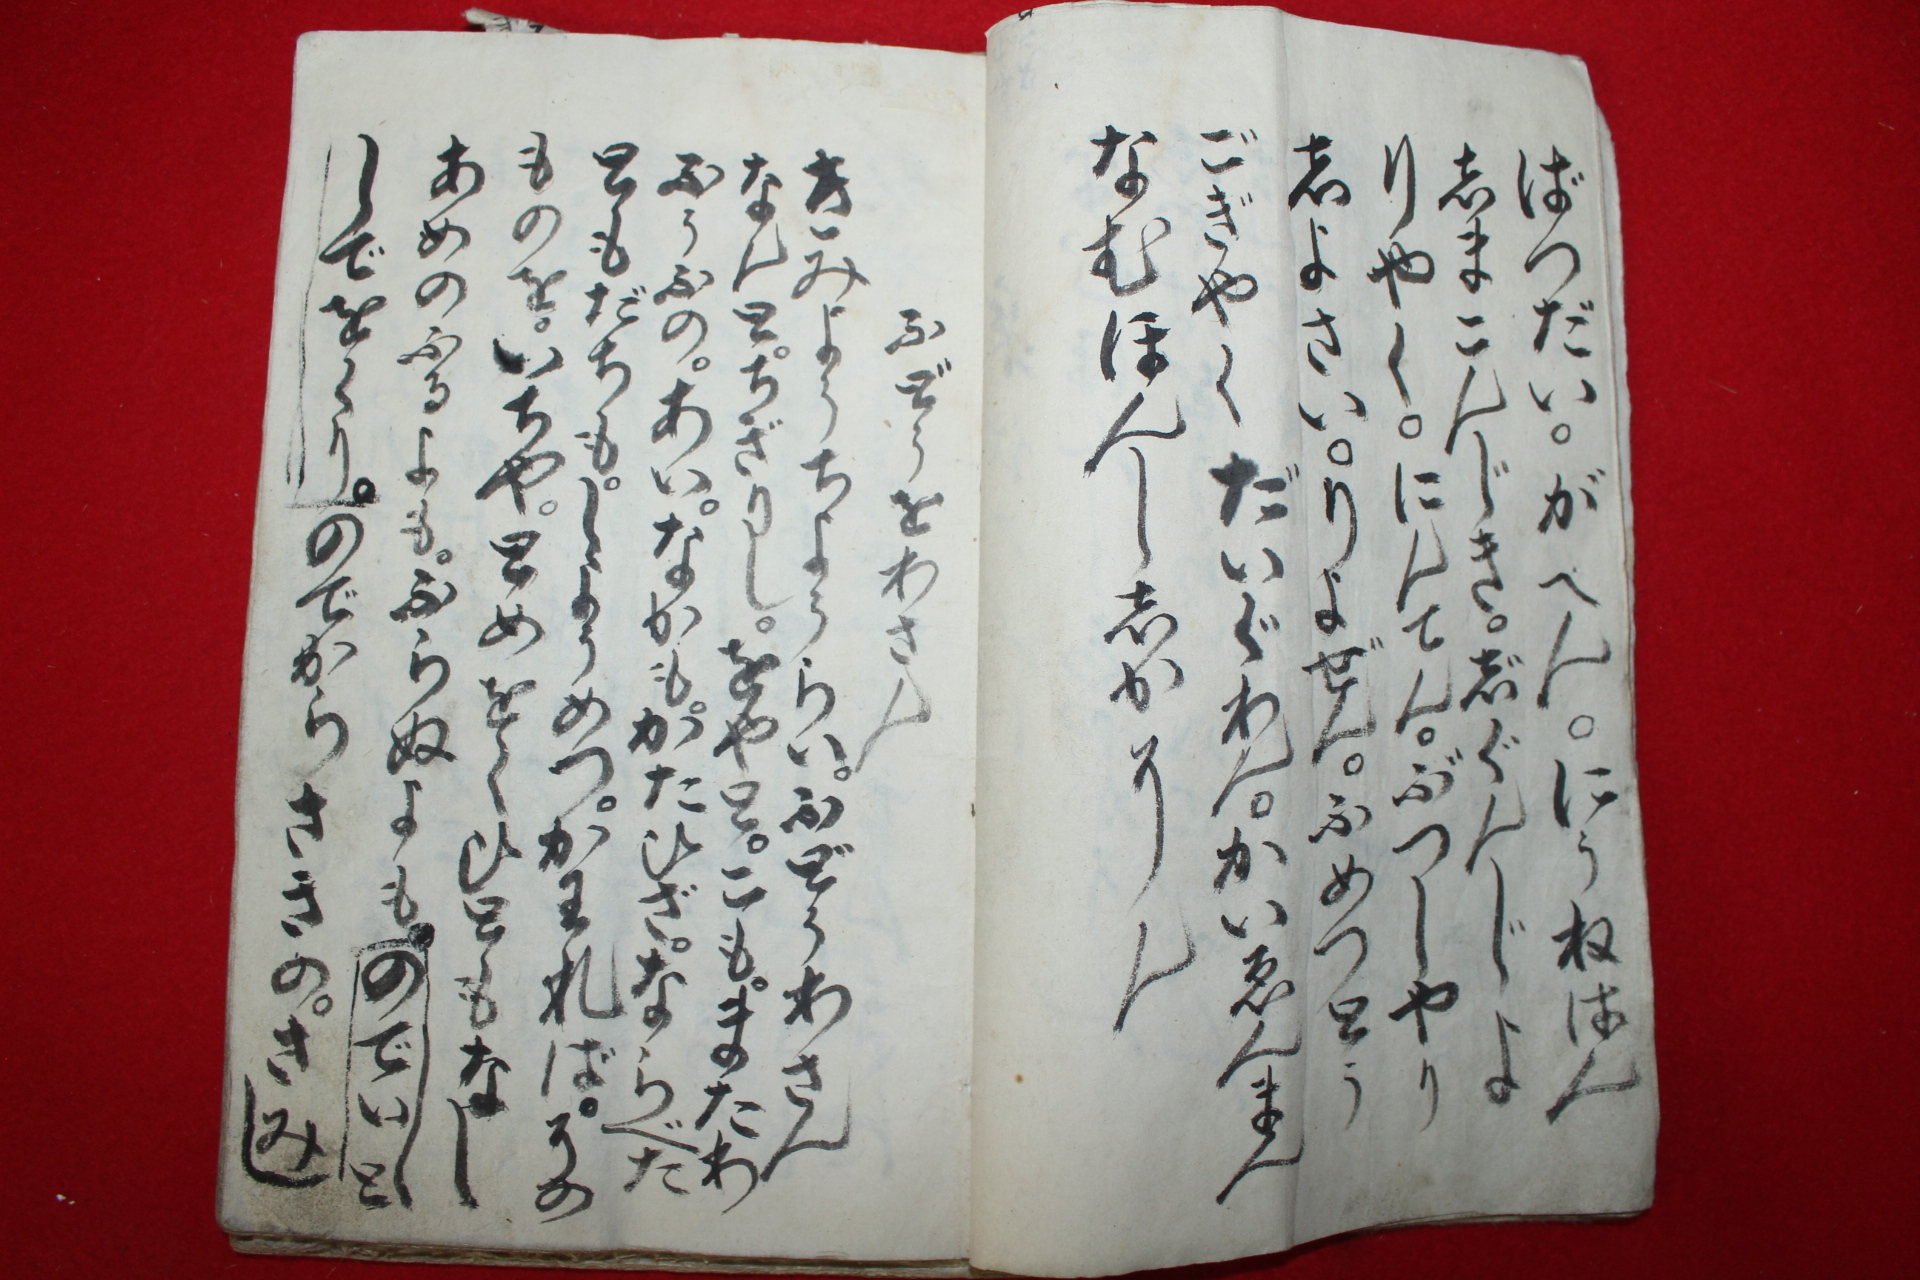 ばつだい。がへん。にうねはん
志まこんじき。志゛ぐんじよ
りやく。にんてん。ぶつしやり
志よさい。りよぜん。ふめつとう
ごぎやくだいぐわん。かいゑんまん
なむほんし志かそん
ふどうをわさん
きみようちようらい。ふどうわさん
なんと。ちぎりし。をやと。こも。またわ
ふうふの。あい。なかも。かたひざ。ならべた
ともだちも。しようめつ。かわれば。その
ものを。いちや。とめをくひともなし
あめのふるよも。ふらぬよも。のでいと
しでをくり。のでからさきの。きみ